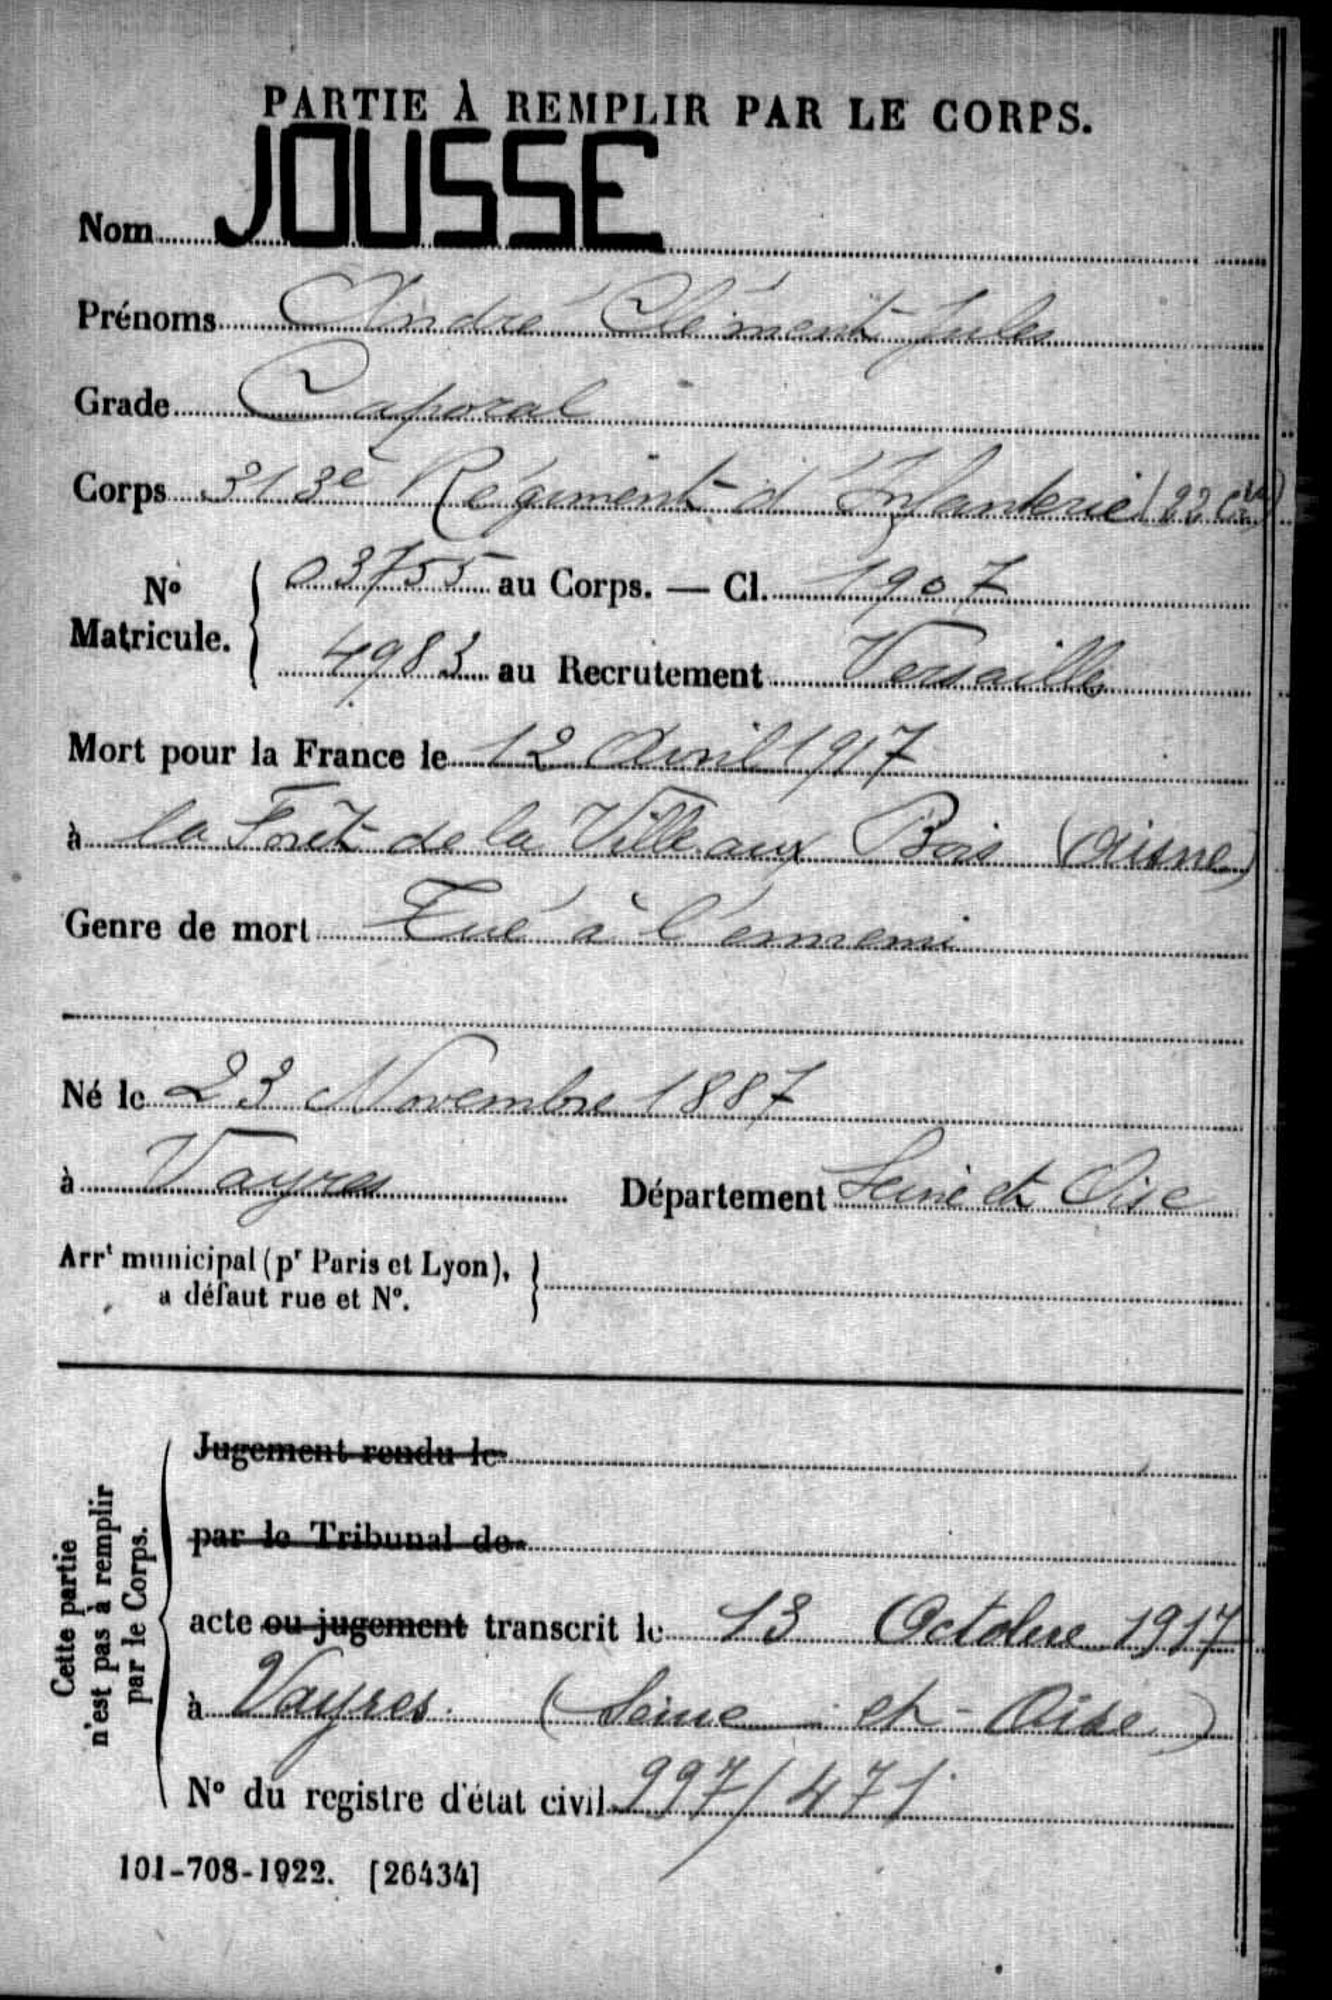 PARTIE À REMPLIR PAR LE CORPS.
Nom JOUSSE
Prénoms André Clément Jules
Grade Caporal
Corps 313e Régiment d'Infanterie (22 Cie)
N° Matricule. { 03755 au Corps. — Cl. 1907
4983 au Recrutement Versailles
Mort pour la France le 12 Avril 1917
à la Forêt de la Ville aux Bois (Aisne)
Genre de mort Tué à l'ennemi
Né le 23 Novembre 1887
à Vayres Département Seine et Oise
Arrt municipal (pr Paris et Lyon),
a défaut rue et N°.
Cette partie
n'est pas à remplir
par le Corps.
Jugement rendu le
par le Tribunal de
acte ou jugement transcrit le 13 Octobre 1917
à Vayres. (Seine-et-Oise)
N° du registre d'état civil 997/471
101-708-1922. [26434]